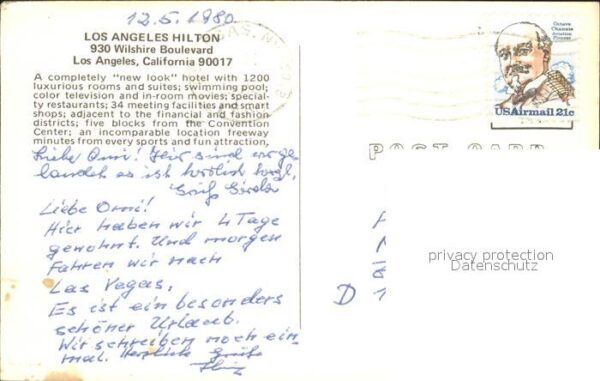 12.5.1980
LOS ANGELES HILTON
930 Wilshire Boulevard
Los Angeles, California 90017
A completely "new look" hotel with 1200
luxurious rooms and suites; swimming pool;
color television and in-room movies; special-
ty restaurants; 34 meeting facilities and smart
shops; adjacent to the financial and fashion
districts; five blocks from the Convention
Center; an incomparable location freeway
minutes from every sports and fun attraction,
Liebe Omi! Hier sind wir ge
landet es ist herrlich
Gruß
Liebe Omi!
Hier haben wir 4 Tage
gewohnt. Und morgen
fahren wir nach
Las Vegas,
Es ist ein besonders
schöner Urlaub.
Wir schreiben noch ein
mal. Herzliche Grüße
Octave
Chanute
Aviation
Pioneer
USAirmail 21c
POST CARD
privacy protection
Datenschutz
D